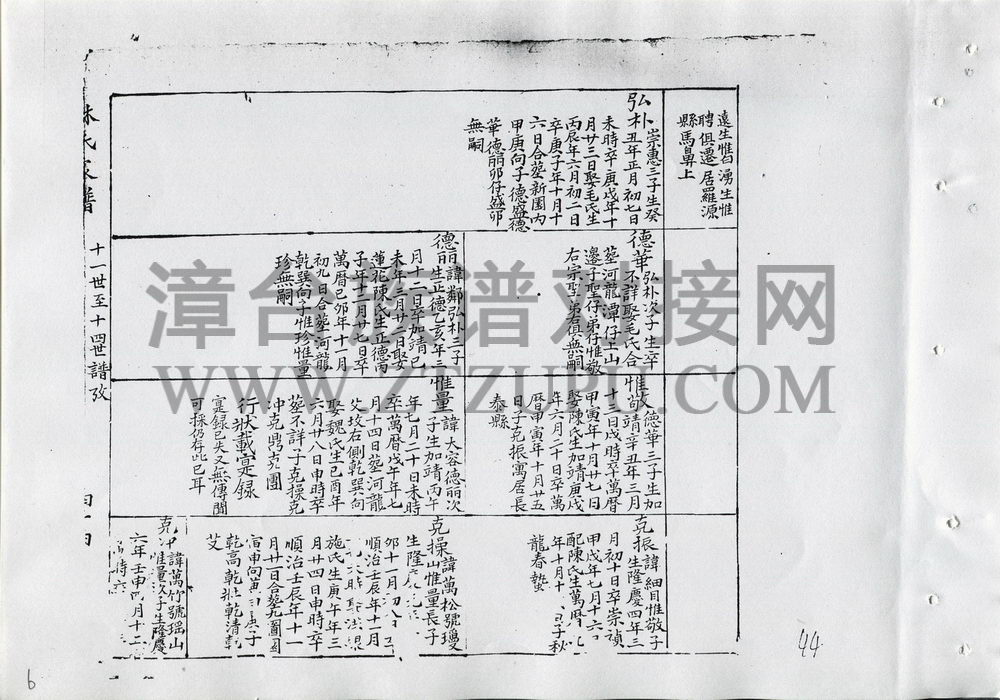 遠生惟曰湧生惟
聘俱遷居羅源
縣馬鼻上
弘朴崇惠三子生癸
丑年正月初七日
未時卒庚戌年十
月廿三日娶毛氏生
丙辰年六月初二日
卒庚子年十月十
六日合墓新園内
甲庚向子德盛德
華德丽卯仔盛卯
無嗣
德華弘朴次子生卒
不詳娶毛氏合
墓河龍潭仔上山
邊子聖仔弟仔惟敬
右宗聖弟右俱無嗣
德丽諱鄰弘朴三子
生正德乙亥年三
月十二日卒加靖己
未年三月廿二日娶
蓮花陳氏生正德丙
子年十二月廿七日卒
萬曆己卯年十一月
初九日合墓河龍
乾巽向子惟珍惟量
珍無嗣
惟敬德華三子生加
靖辛丑年三月
十三日戌時卒萬曆
甲寅年十月廿七日
娶陳氏生加靖庚戌
年六月二十日卒萬
曆甲寅年十月廿五
日子克振寓居長
泰縣
惟量諱大容德丽次
子生加靖丙午
年七月二十日未時
卒萬曆戊午年七
月十四日墓河龍
父坟右側乾巽向
娶魏氏生己酉年
六月廿八日申時卒
墓不詳子克操克
冲克鼎克團
行狀載寔録
寔録已失又無傳聞
可採仍存此已耳
克振諱細目惟敬子
生隆慶四年三
月初十日卒崇禎
甲戌年七月十六
配陳氏生萬曆
年十月十 子秋
龍春蟄
克操諱萬松號瓊
山惟量長子
生隆
卯十一月初
順治壬辰年十一月
時娶洪
施氏生庚午年三
月廿四日申時卒
順治壬辰年十一
月廿一日合墓九圖園
寅申向 子
乾高乾 乾清乾
艾
克冲諱萬竹號瑶山
惟量次子生隆慶
六年壬申 月十二
時
朱氏家譜
十一世至十四世譜攷
四十四
漳台族谱对接网
WWW.ZTZUPU.COM
44
6